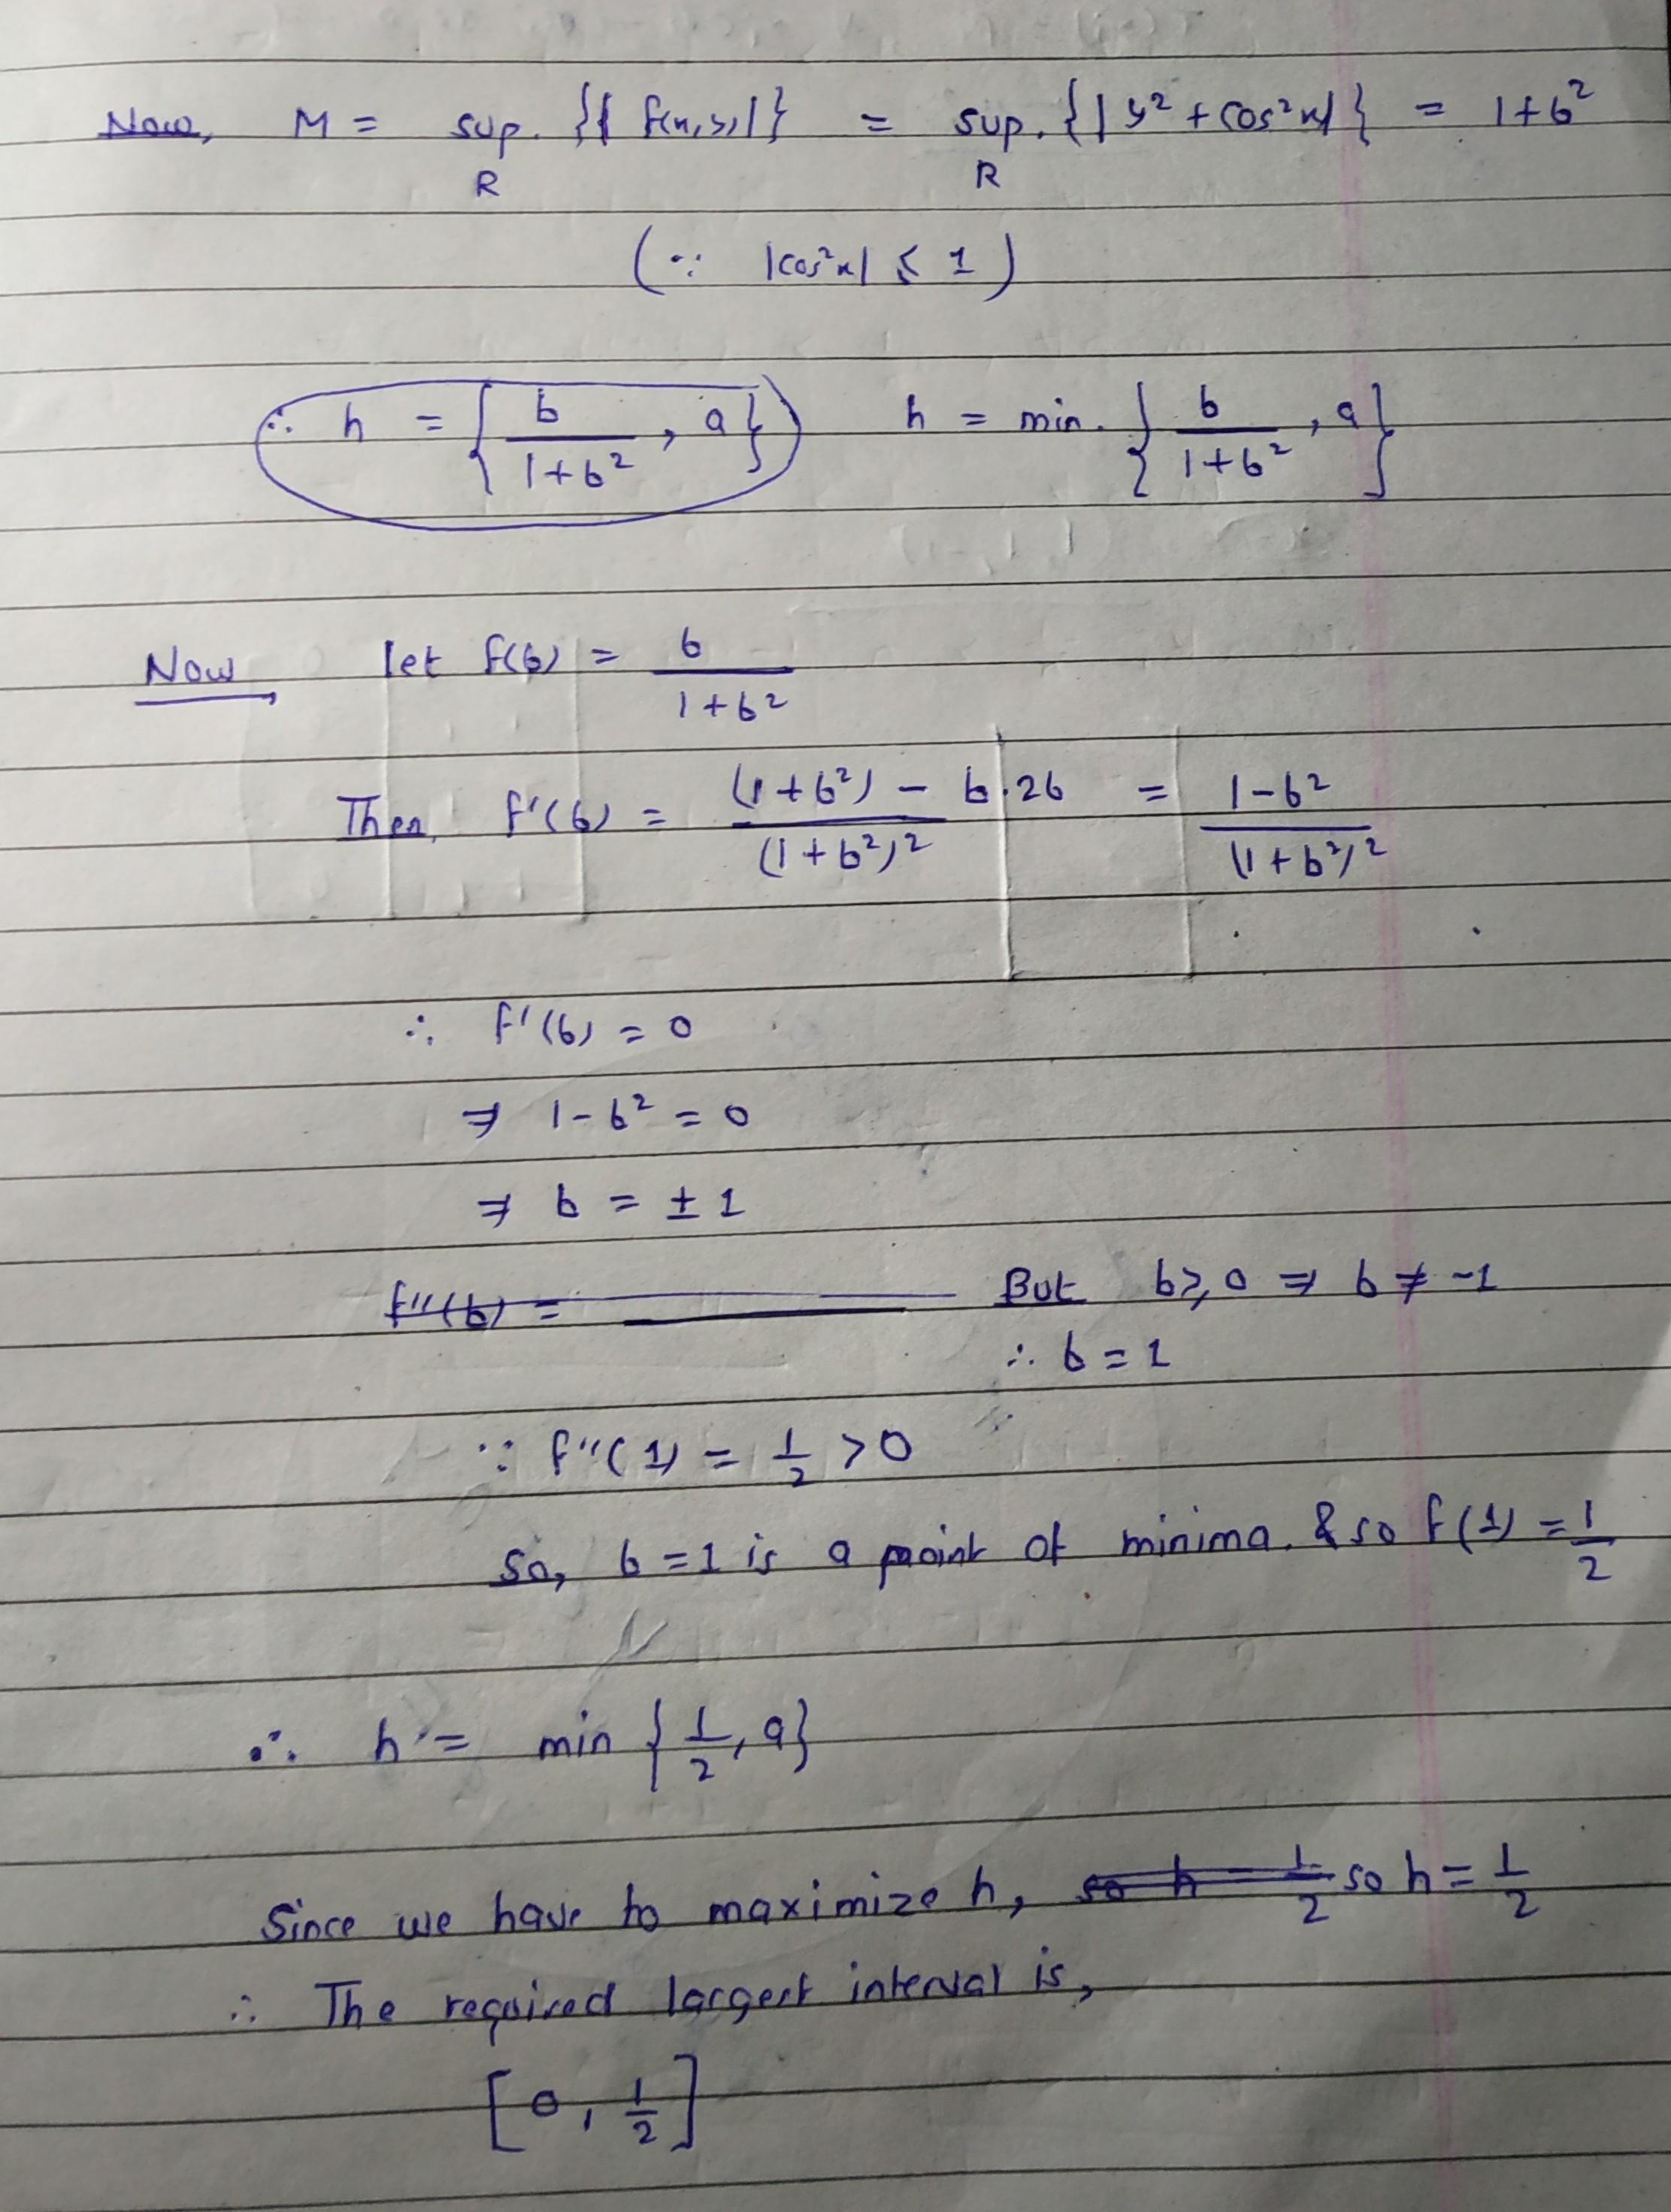 Now, M = sup. {| f(x,y)|} = sup. {| y² + cos²x|} = 1+b²
R R
(∵ |cos²x| ≤ 1)
∴ h = { b/(1+b²) , a} h = min. { b/(1+b²) , a}
Now let f(b) = b/(1+b²)
Then, f'(b) = ((1+b²) - b.2b)/(1+b²)² = (1-b²)/(1+b²)²
∴ f'(b) = 0
⇒ 1-b² = 0
⇒ b = ± 1
f''(b) = But b≥0 ⇒ b ≠ -1
∴ b = 1
∵ f''(1) = 1/2 >0
So, b=1 is a point of minima. & so f(1) = 1/2
∴ h = min {1/2, a}
Since we have to maximize h, so h = 1/2 so h = 1/2
∴ The required largest interval is,
[0, 1/2]